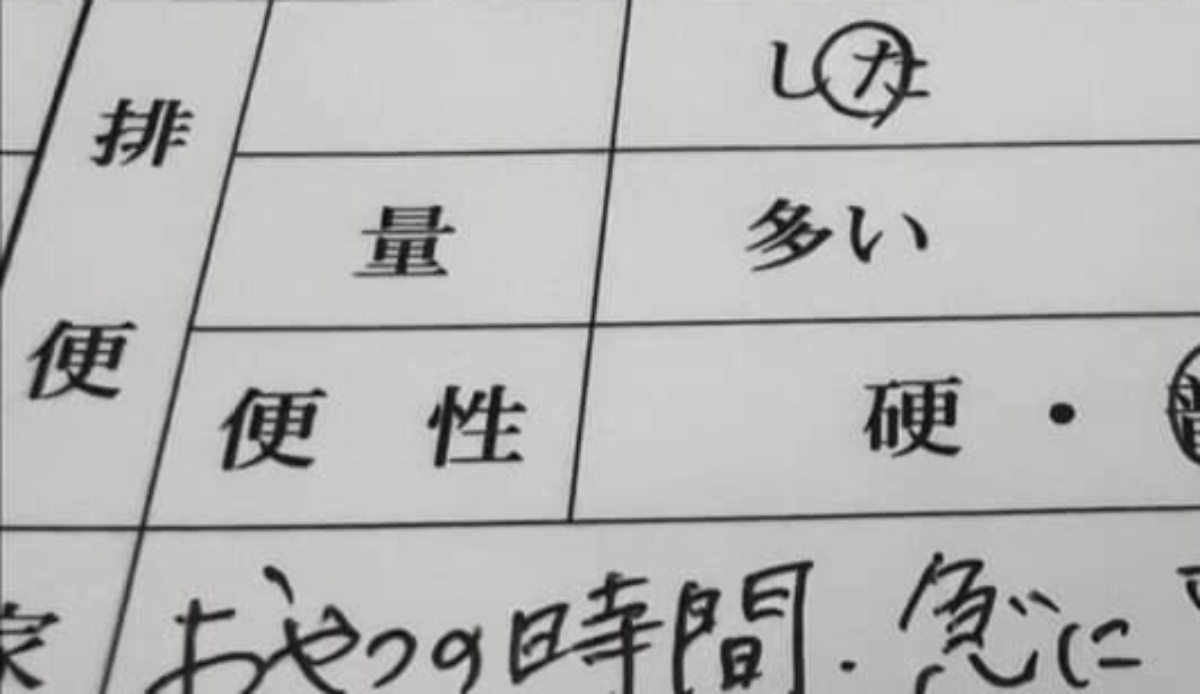 した
排便
量 多い
便性 硬・
家 おやつの時間.急に